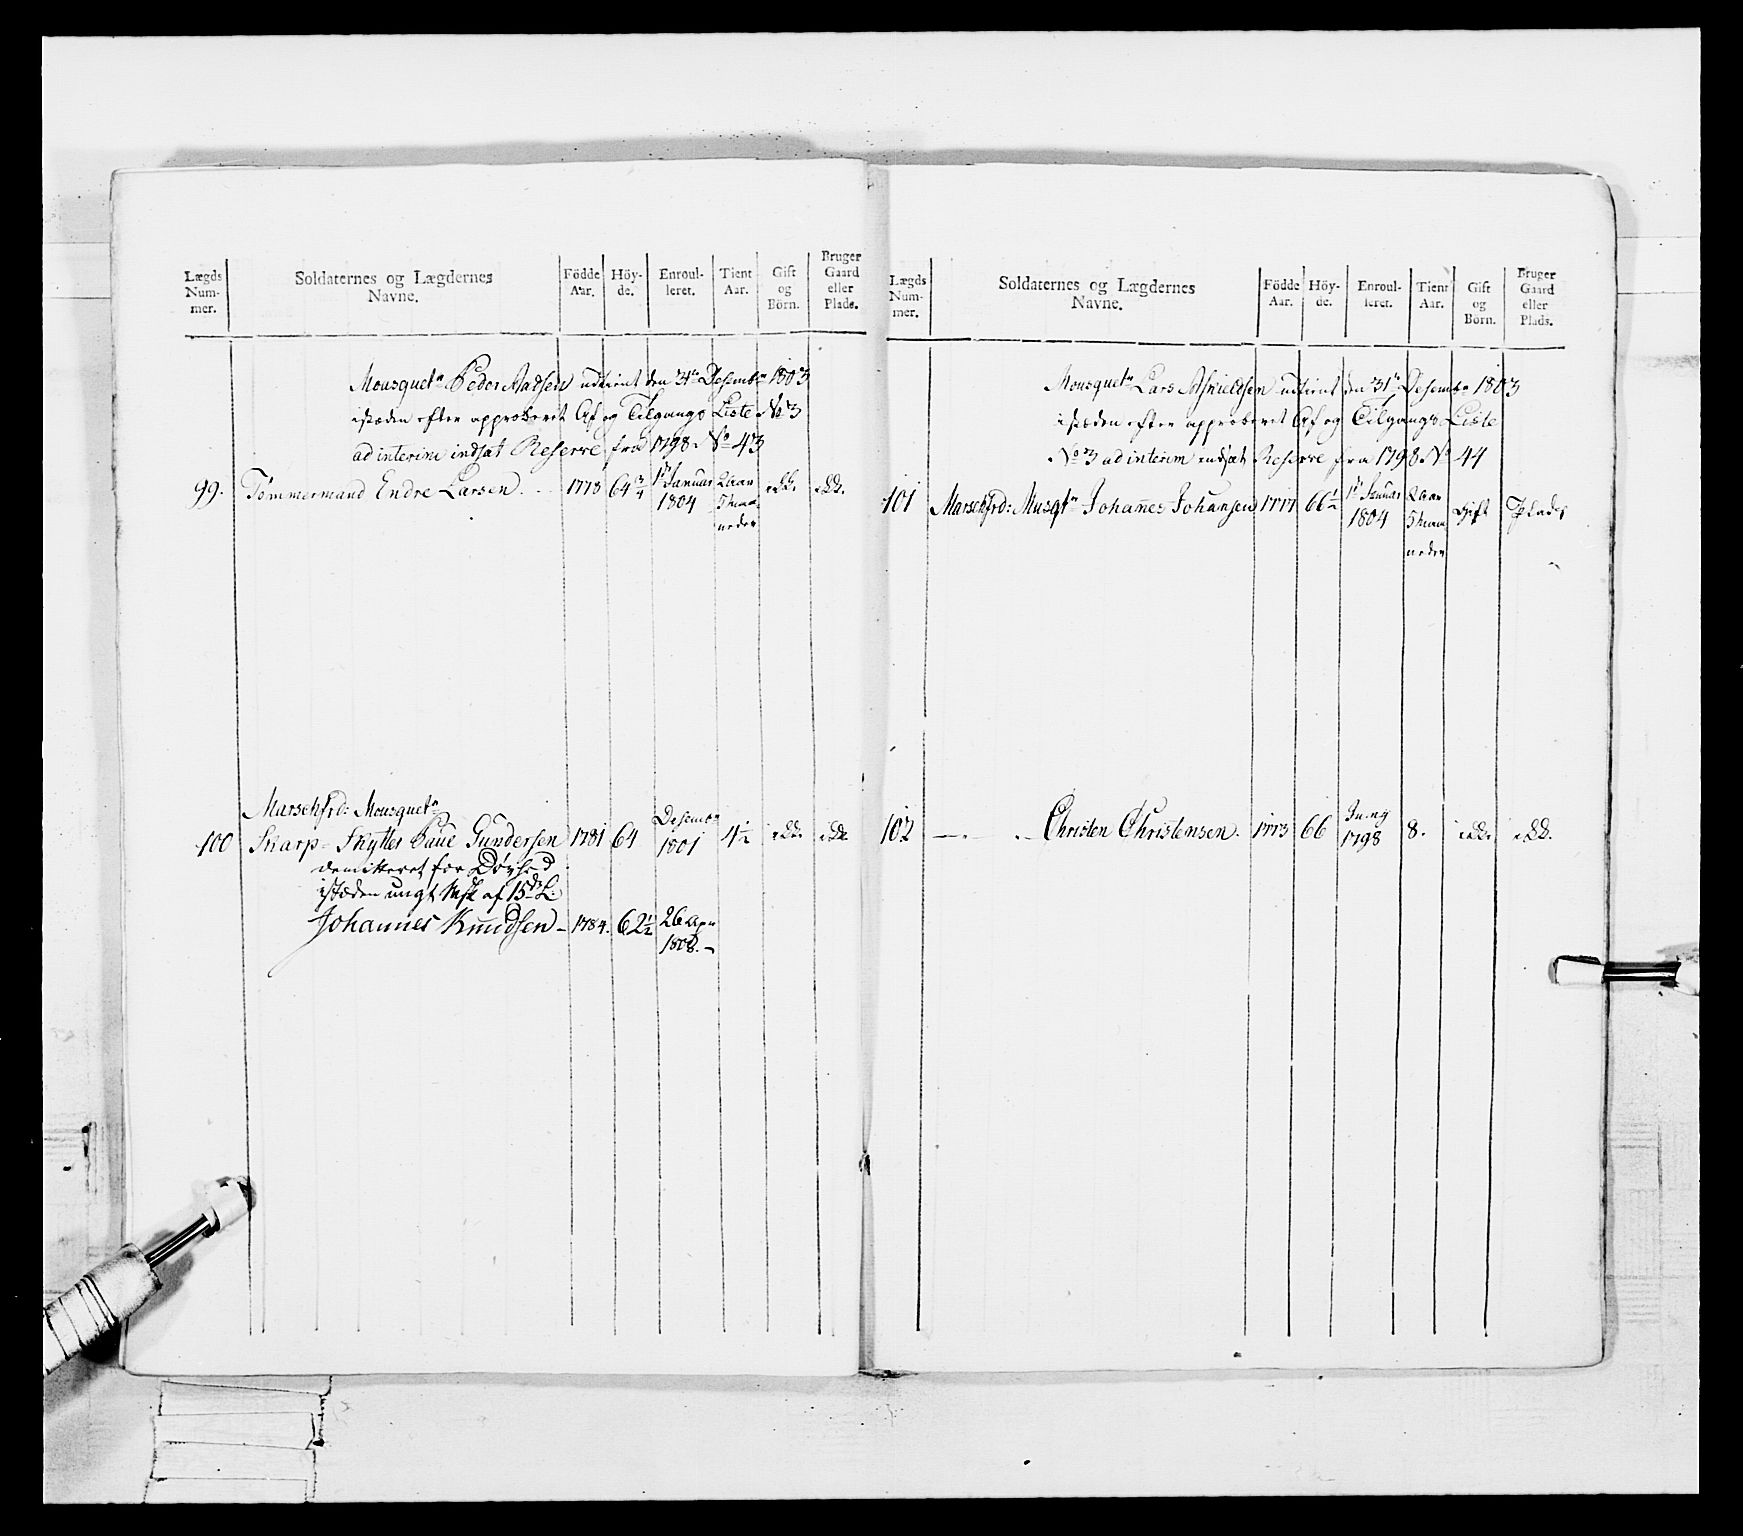 Lægds Num- mer. Soldaternes og Lægdernes Navne. Födde Aar. Höy- de. Enroul- leret. Tient Aar. Gift og Börn. Bruger Gaard eller Plads.
Mousquetr Peder Aadsen udtient den 31te Desembr 1803
istæden efter approberet Af og Tilgangs Liste No 3
ad interim indsat Reserve fra 1798 No 43
99. Tömmermand Endre Larsen. 1778 64 3/4 1te Januar 1804 2 Aar 5 maa neder ikke. ikke.
Marschfrd: Mousquetr
100 Skarp-Skytter Paul Gundersen 1781 64 Desembr 1801 4 1/2 ikke. ikke
demitteret for Døvhed
istæden ungt Msk af 15de L:
Johannes Knudsen – 1784. 62 1/2 26 Apr 1808. –
Lægds Num- mer. Soldaternes og Lægdernes Navne. Födde Aar. Höy- de. Enroul- leret. Tient Aar. Gift og Börn. Bruger Gaard eller Plads.
Mousquetr Lars udtient den 31te Desembr 1803
istæden efter approberet Af og Tilgangs Liste
No 3 ad interim indsat Reserve fra 1798 No 44
101 Marschfrd: Musqtr Johañes Johansen 1777 66 1/2 1te Januar 1804 2 Aar 5 maa neder Gift Plads
102 — . — . Christen Christensen. 1773 66 1798 8. ikke. ikke.